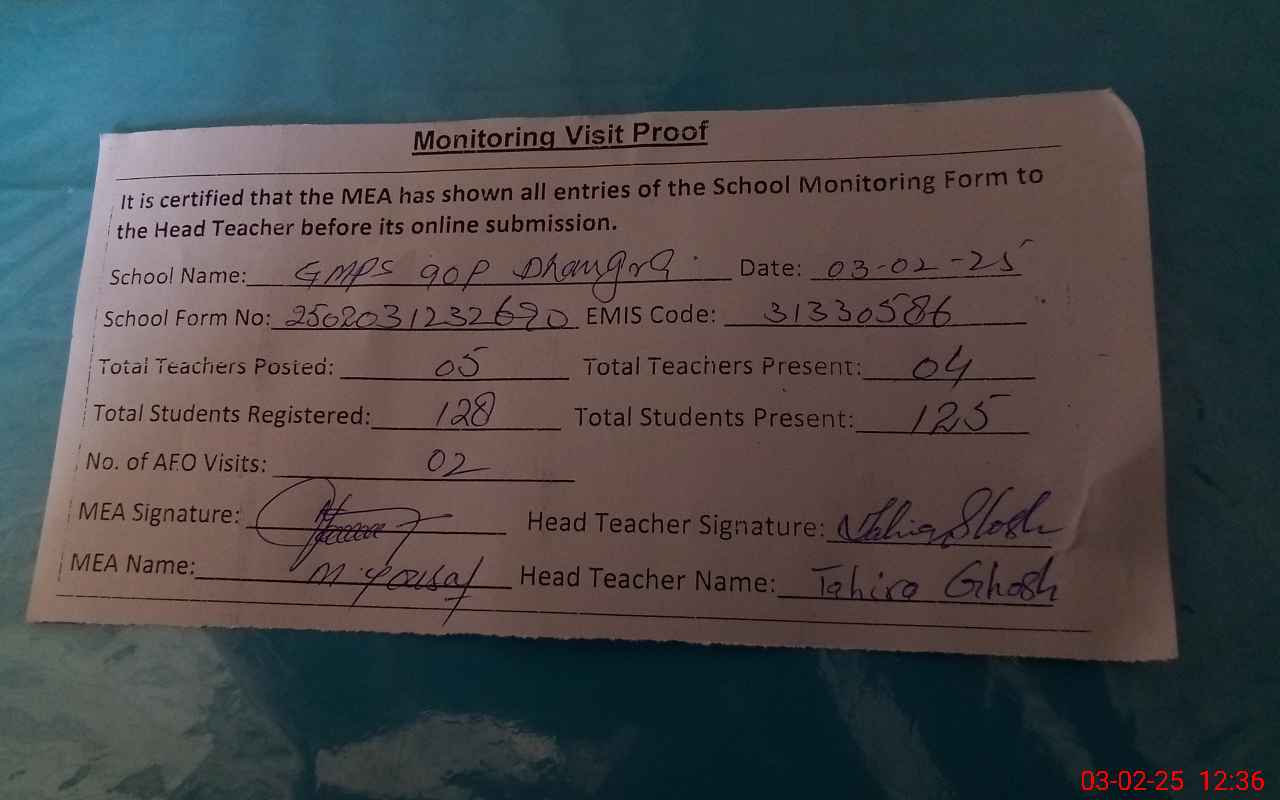 Monitoring Visit Proof
It is certified that the MEA has shown all entries of the School Monitoring Form to
the Head Teacher before its online submission.
School Name: GMPS 90P Dhangra Date: 03-02-25
School Form No: 2502031232690 EMIS Code: 31330586
Total Teachers Posted: 05 Total Teachers Present: 04
Total Students Registered: 128 Total Students Present: 125
No. of AEO Visits: 02
MEA Signature: Head Teacher Signature:
MEA Name: M. Yousaf Head Teacher Name: Tahira Ghosh
03-02-25 12:36